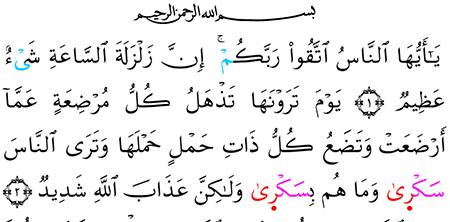 بسم الله الرحمن الرحيم
يَٰٓأَيُّهَا ٱلنَّاسُ ٱتَّقُوا۟ رَبَّكُمْ ۚ إِنَّ زَلْزَلَةَ ٱلسَّاعَةِ شَىْءٌ
عَظِيمٌ ۝١ يَوْمَ تَرَوْنَهَا تَذْهَلُ كُلُّ مُرْضِعَةٍ عَمَّآ
أَرْضَعَتْ وَتَضَعُ كُلُّ ذَاتِ حَمْلٍ حَمْلَهَا وَتَرَى ٱلنَّاسَ
سَكْرىٰ وَمَا هُم بِسَكْرىٰ وَلَٰكِنَّ عَذَابَ ٱللَّهِ شَدِيدٌ ۝٢